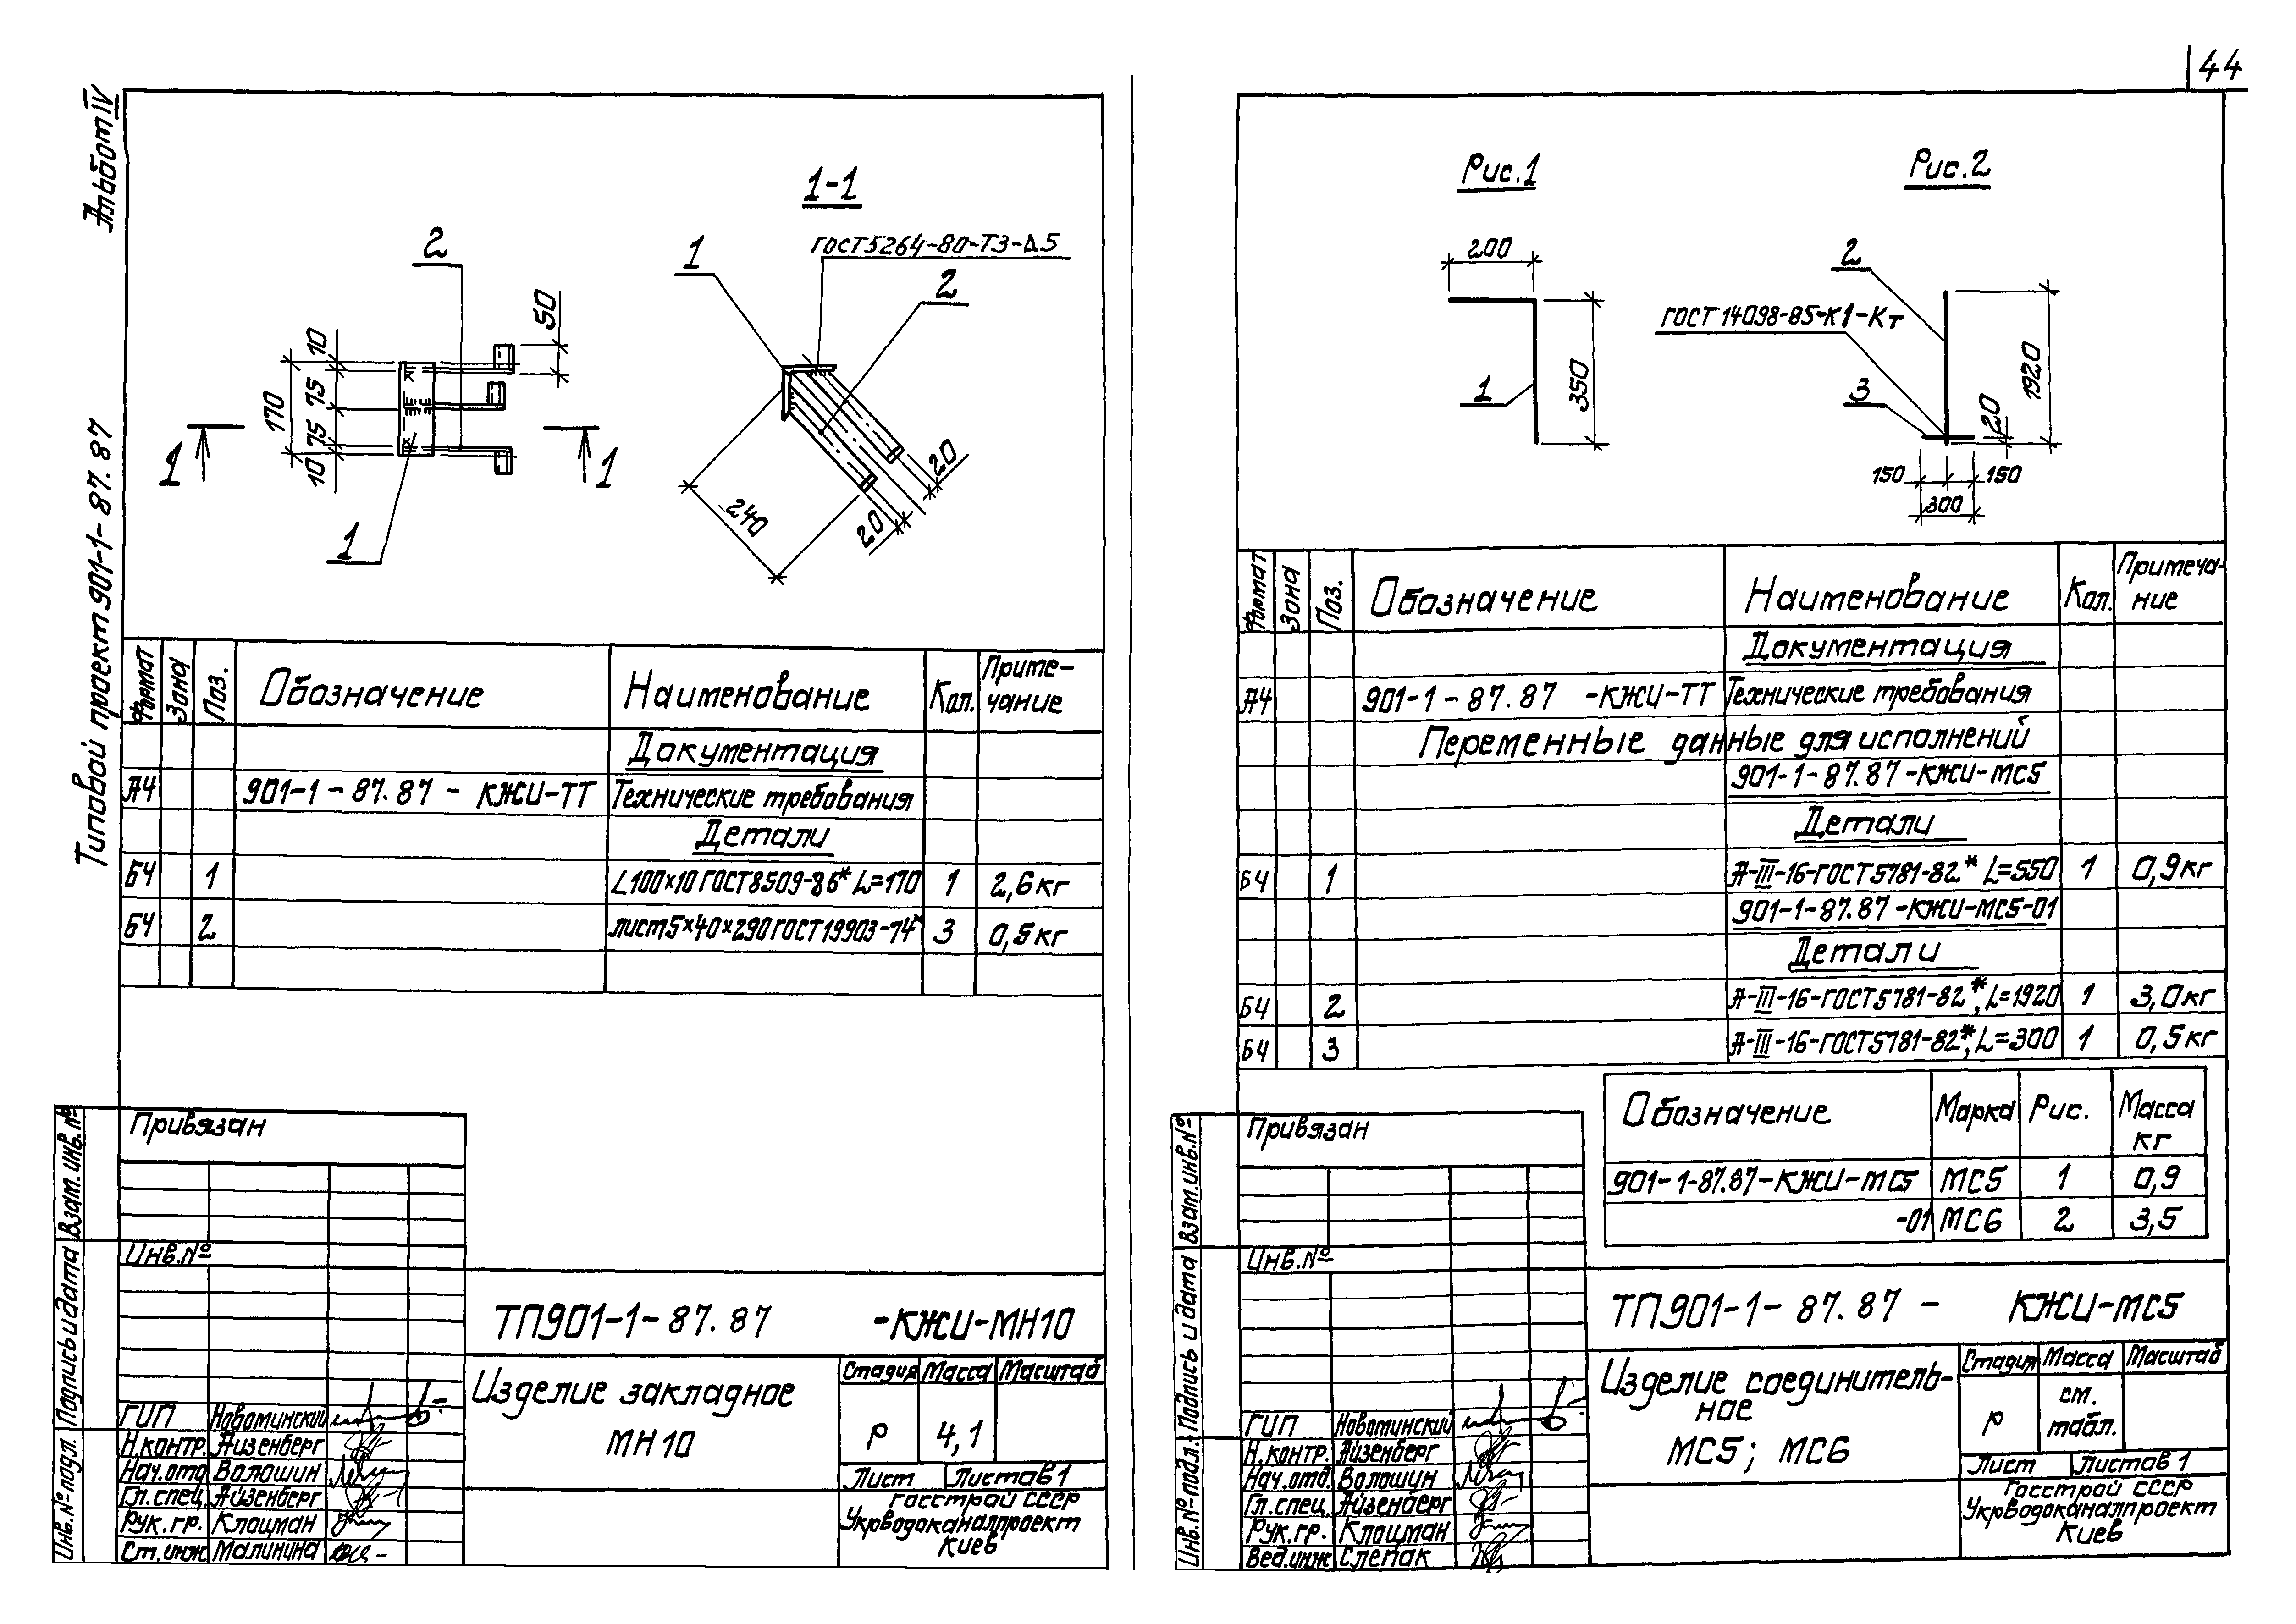 44
Альбом IV
Типовой проект 901-1-87.87
1-1
ГОСТ5264-80-Т3-Δ5
1
2
2
50
10
75
170
75
10
1
1
1
240
20
20
Формат Зона Поз. Обозначение Наименование Кол. Приме-
чание
Документация
А4 901-1-87.87 - КЖИ-ТТ Технические требования
Детали
Б4 1 L100×10 ГОСТ8509-86* L=170 1 2,6кг
Б4 2 лист5×40×290 ГОСТ19903-74* 3 0,5кг
Привязан
Инв.№
Взам.инв.№
Подпись и дата
Инв.№подл.
ТП901-1-87.87 -КЖИ-МН10
Изделие закладное
МН10
Стадия Масса Масштаб
Р 4,1
Лист Листов 1
Госстрой СССР
Укрводоканалпроект
Киев
ГИП Новоминский
Н.контр. Айзенберг
Нач.отд Волошин
Гл.спец. Айзенберг
Рук.гр. Клоцман
Ст.инж Малинина
Рис.1
Рис.2
200
350
1
2
ГОСТ14098-85-К1-Кт
3
1920
20
150
150
300
Формат Зона Поз. Обозначение Наименование Кол. Примеча-
ние
Документация
А4 901-1-87.87 -КЖИ-ТТ Технические требования
Переменные данные для исполнений
901-1-87.87-КЖИ-МС5
Детали
Б4 1 А-III-16-ГОСТ5781-82* L=550 1 0,9кг
901-1-87.87-КЖИ-МС5-01
Детали
Б4 2 А-III-16-ГОСТ5781-82*, L=1920 1 3,0кг
Б4 3 А-III-16-ГОСТ5781-82*, L=300 1 0,5кг
Обозначение Марка Рис. Масса
кг
901-1-87.87-КЖИ-МС5 МС5 1 0,9
-01 МС6 2 3,5
Привязан
Инв.№
Взам.инв.№
Подпись и дата
Инв.№подл.
ТП901-1-87.87 - КЖИ-МС5
Изделие соединитель-
ное
МС5; МС6
Стадия Масса Масштаб
Р см.
табл.
Лист Листов 1
Госстрой СССР
Укрводоканалпроект
Киев
ГИП Новоминский
Н.контр. Айзенберг
Нач.отд. Волошин
Гл.спец. Айзенберг
Рук.гр. Клоцман
Вед.инж Слепак